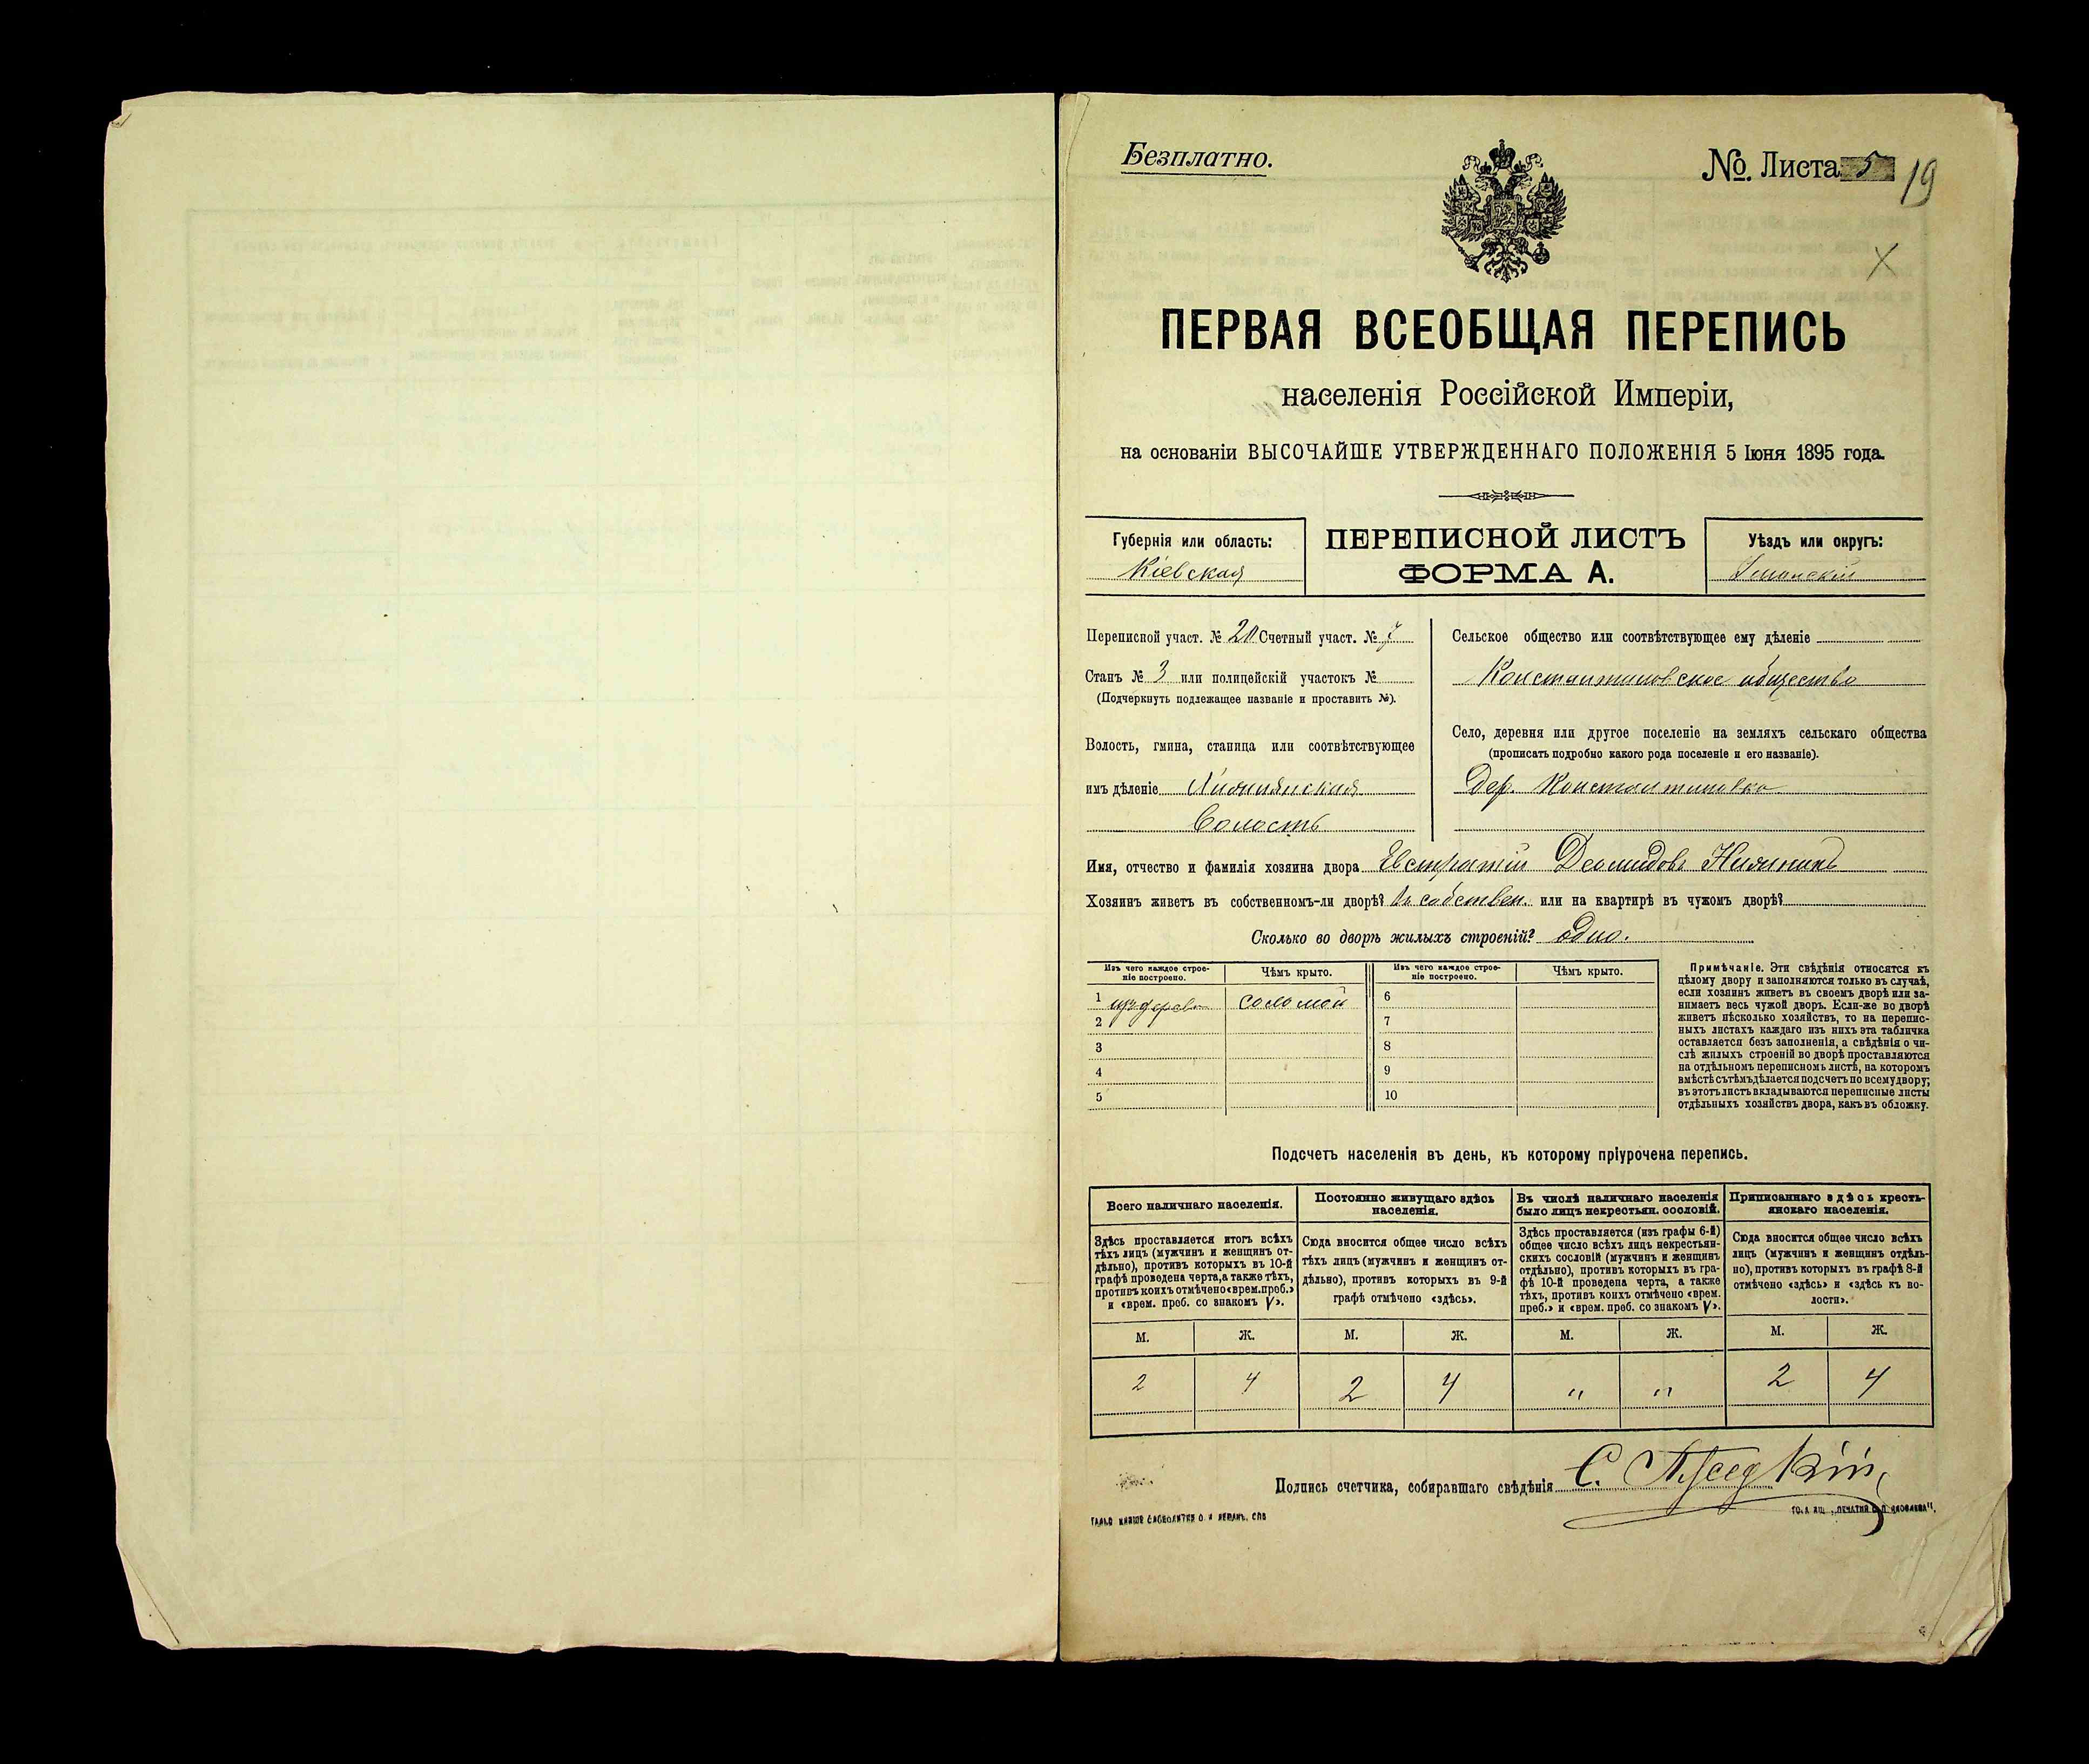 Безплатно.
№. Листа 5
19
X
ПЕРВАЯ ВСЕОБЩАЯ ПЕРЕПИСЬ
населенія Россійской Имперіи,
на основаніи ВЫСОЧАЙШЕ УТВЕРЖДЕННАГО ПОЛОЖЕНІЯ 5 Іюня 1895 года.
Губернія или область:
Кіевская
ПЕРЕПИСНОЙ ЛИСТЪ
ФОРМА А.
Уѣздъ или округъ:
Уманскій
Переписной участ. № 20 Счетный участ. № 7
Станъ № 3 или полицейскій участокъ №
(Подчеркнуть подлежащее названіе и проставить №).
Волость, гмина, станица или соотвѣтствующее
имъ дѣленіе
волость
Сельское общество или соотвѣтствующее ему дѣленіе
Константиновское общество
Село, деревня или другое поселеніе на земляхъ сельскаго общества
(прописать подробно какого рода поселеніе и его названіе).
Дер. Константиновка
Имя, отчество и фамилія хозяина двора Евстратій Деомидовъ
Хозяинъ живетъ въ собственномъ-ли дворѣ? въ собствен. или на квартирѣ въ чужомъ дворѣ?
Сколько во дворѣ жилыхъ строеній? одно.
Изъ чего каждое строе-
ніе построено.
Чѣмъ крыто.
Изъ чего каждое строе-
ніе построено.
Чѣмъ крыто.
1 изъ дерева соломой 6
2 7
3 8
4 9
5 10
Примѣчаніе. Эти свѣдѣнія относятся къ
цѣлому двору и заполняются только въ случаѣ,
если хозяинъ живетъ въ своемъ дворѣ или за-
нимаетъ весь чужой дворъ. Если-же во дворѣ
живетъ нѣсколько хозяйствъ, то на перепис-
ныхъ листахъ каждаго изъ нихъ эта табличка
оставляется безъ заполненія, а свѣдѣнія о чи-
слѣ жилыхъ строеній во дворѣ проставляются
на отдѣльномъ переписномъ листѣ, на которомъ
вмѣстѣ съ тѣмъ дѣлается подсчетъ по всему двору;
въ этотъ листъ вкладываются переписные листы
отдѣльныхъ хозяйствъ двора, какъ въ обложку.
Подсчетъ населенія въ день, къ которому пріурочена перепись.
Всего наличнаго населенія.
Здѣсь проставляется итогъ всѣхъ
тѣхъ лицъ (мужчинъ и женщинъ от-
дѣльно), противъ которыхъ въ 10-й
графѣ проведена черта, а также тѣхъ,
противъ коихъ отмѣчено «врем. преб.»
и «врем. преб. со знакомъ V».
Постоянно живущаго здѣсь
населенія.
Сюда вносится общее число всѣхъ
тѣхъ лицъ (мужчинъ и женщинъ от-
дѣльно), противъ которыхъ въ 9-й
графѣ отмѣчено «здѣсь».
Въ числѣ наличнаго населенія
было лицъ некрестьян. сословій.
Здѣсь проставляется (изъ графы 6-й)
общее число всѣхъ лицъ некрестьян-
скихъ сословій (мужчинъ и женщинъ
отдѣльно), противъ которыхъ въ гра-
фѣ 10-й проведена черта, а также
тѣхъ, противъ коихъ отмѣчено «врем.
преб.» и «врем. преб. со знакомъ V».
Приписаннаго здѣсь кресть-
янскаго населенія.
Сюда вносится общее число всѣхъ
лицъ (мужчинъ и женщинъ отдѣль-
но), противъ которыхъ въ графѣ 8-й
отмѣчено «здѣсь» и «здѣсь къ во-
лости».
М. Ж. М. Ж. М. Ж. М. Ж.
2 4 2 4 " " 2 4
Подпись счетчика, собиравшаго свѣдѣнія С.